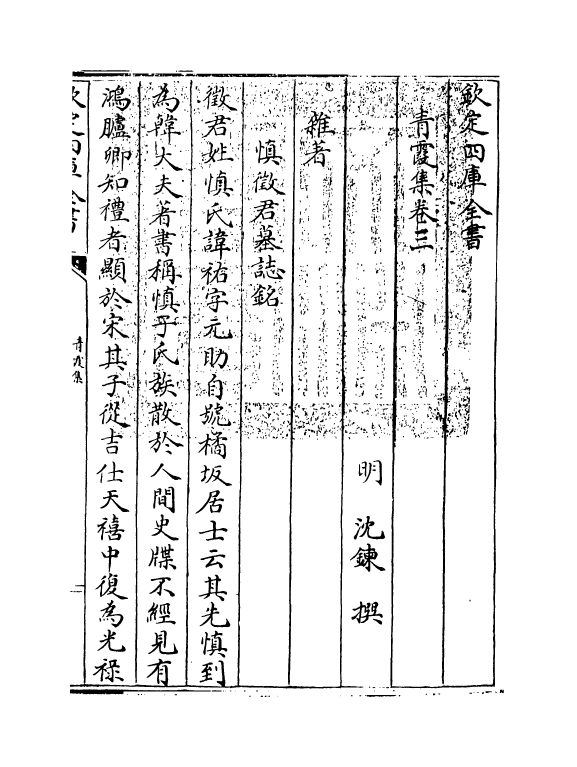 欽定四庫全書
青霞集卷三
明 沈鍊 撰
雜著
慎徵君墓誌銘
徵君姓慎氏諱祐字元助自號橘坂居士云其先慎到
為韓大夫著書稱慎子氏族散於人間史牒不經見有
鴻臚卿知禮者顯於宋其子從吉仕天禧中復為光祿
欽定四庫全書
青霞集